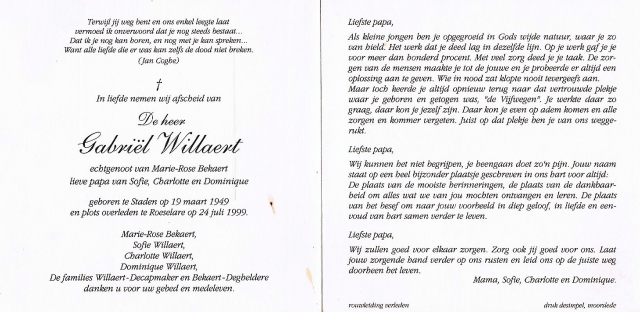 Terwijl jij weg bent en ons enkel leegte laat
vermoed ik onverwoord dat je nog steeds bestaat...
Dat ik je nog kan horen, en nog met je kan spreken...
Want alle liefde die er was kan zelfs de dood niet breken.
(Jan Coghe)
†
In liefde nemen wij afscheid van
De heer
Gabriël Willaert
echtgenoot van Marie-Rose Bekaert
lieve papa van Sofie, Charlotte en Dominique
geboren te Staden op 19 maart 1949
en plots overleden te Roeselare op 24 juli 1999.
Marie-Rose Bekaert,
Sofie Willaert,
Charlotte Willaert,
Dominique Willaert,
De families Willaert-Decapmaker en Bekaert-Degheldere
danken u voor uw gebed en medeleven.
Liefste papa,
Als kleine jongen ben je opgegroeid in Gods wijde natuur, waar je zo
van hield. Het werk dat je deed lag in dezelfde lijn. Op je werk gaf je je
voor meer dan honderd procent. Met veel zorg deed je je taak. De zor-
gen van de mensen maakte je tot de jouwe en je probeerde er altijd een
oplossing aan te geven. Wie in nood zat klopte nooit tevergeefs aan.
Maar toch keerde je altijd opnieuw terug naar dat vertrouwde plekje
waar je geboren en getogen was, "de Vijfwegen". Je werkte daar zo
graag, daar kon je jezelf zijn. Daar kon je even op adem komen en alle
zorgen en kommer vergeten. Juist op dat plekje ben je van ons wegge-
rukt.
Liefste papa,
Wij kunnen het niet begrijpen, je heengaan doet zo'n pijn. Jouw naam
staat op een heel bijzonder plaatsje geschreven in ons hart voor altijd:
De plaats van de mooiste herinneringen, de plaats van de dankbaar-
heid om alles wat we van jou mochten ontvangen en leren. De plaats
van het besef om naar jouw voorbeeld in diep geloof, in liefde en een-
voud van hart samen verder te leven.
Liefste papa,
Wij zullen goed voor elkaar zorgen. Zorg ook jij goed voor ons. Laat
jouw zorgende hand verder op ons rusten en leid ons op de juiste weg
doorheen het leven.
Mama, Sofie, Charlotte en Dominique.
rouwleiding verleden
druk desimpel, moorslede